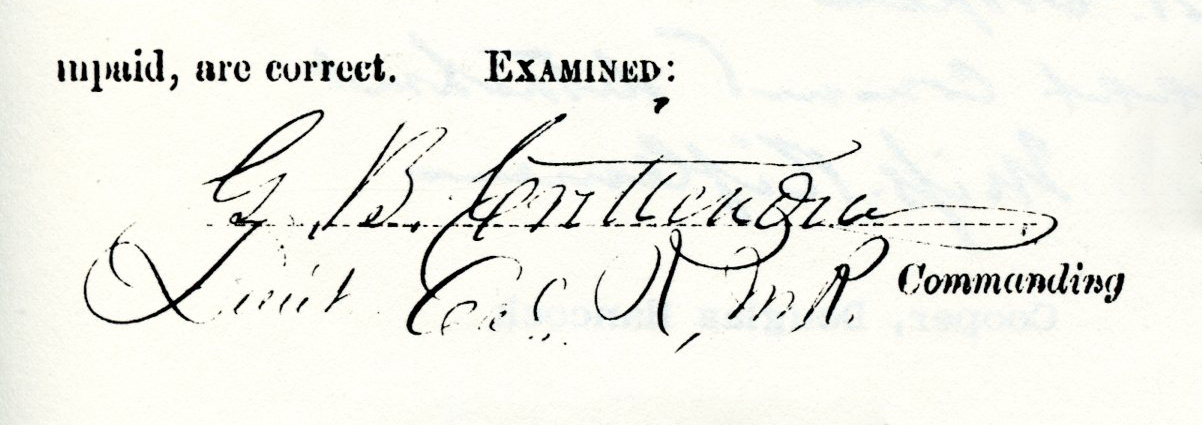 unpaid, are correct. EXAMINED:
G. B. Crittenden
Lieut. Col. R, M R. Commanding